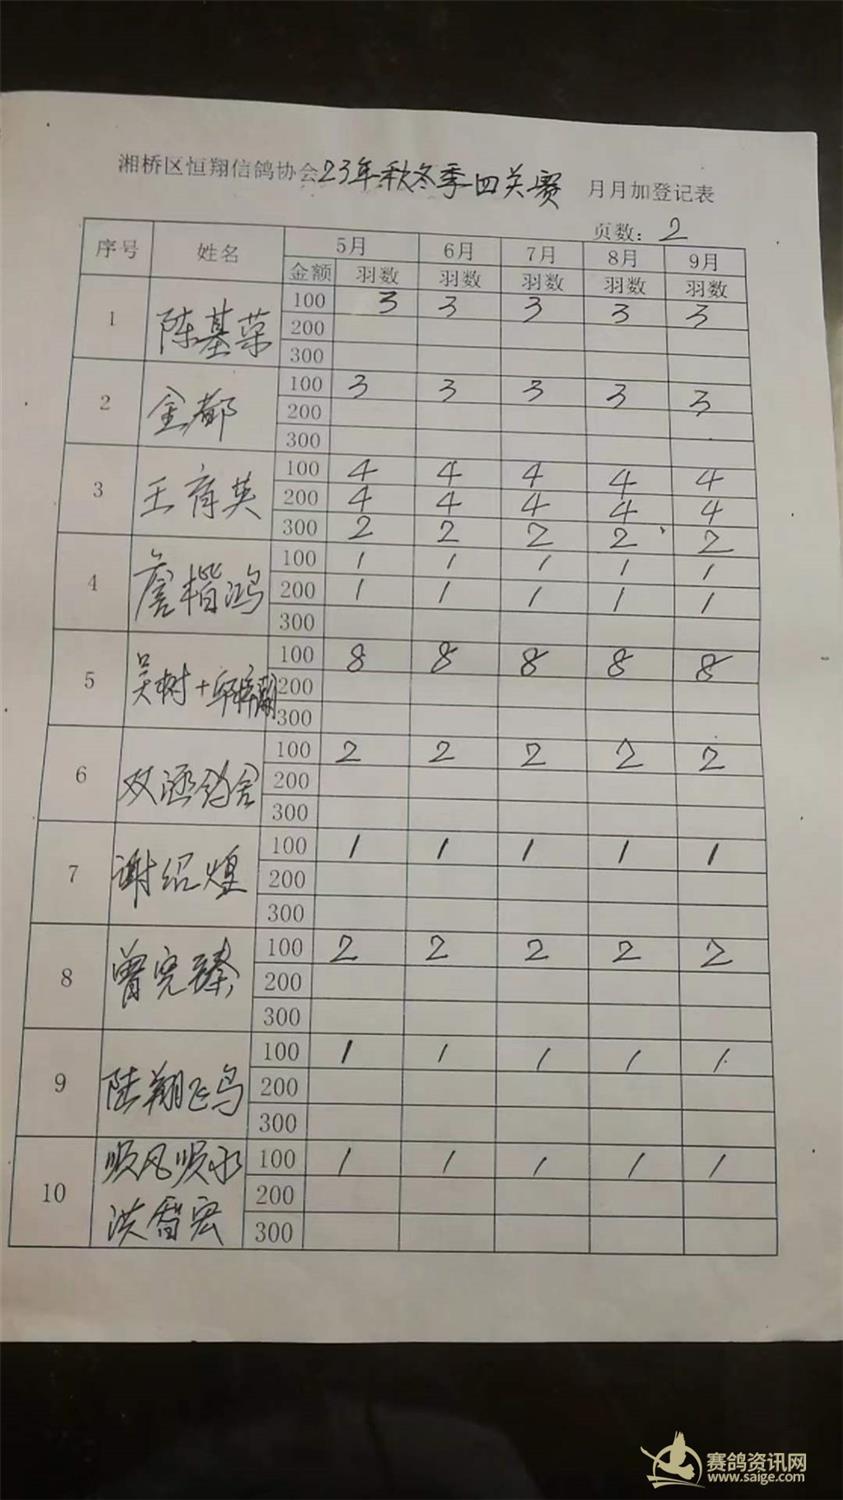 湘桥区恒翔信鸽协会23年秋冬季四关赛 月月加登记表
页数：2
序号 姓名 5月 6月 7月 8月 9月
金额 羽数 羽数 羽数 羽数 羽数
1 陈基荣 100 3 3 3 3 3
200
300
2 金都 100 3 3 3 3 3
200
300
3 王育英 100 4 4 4 4 4
200 4 4 4 4 4
300 2 2 2 2 2
4 詹楷鸿 100 1 1 1 1 1
200 1 1 1 1 1
300
5 吴树+ 100 8 8 8 8 8
200
300
6 双涵鸽舍 100 2 2 2 2 2
200
300
7 谢绍煌 100 1 1 1 1 1
200
300
8 曾完臻 100 2 2 2 2 2
200
300
9 陆翔飞鸟 100 1 1 1 1 1
200
300
10 顺风顺水 100 1 1 1 1 1
洪智宏 200
300
赛鸽资讯网
www.saige.com